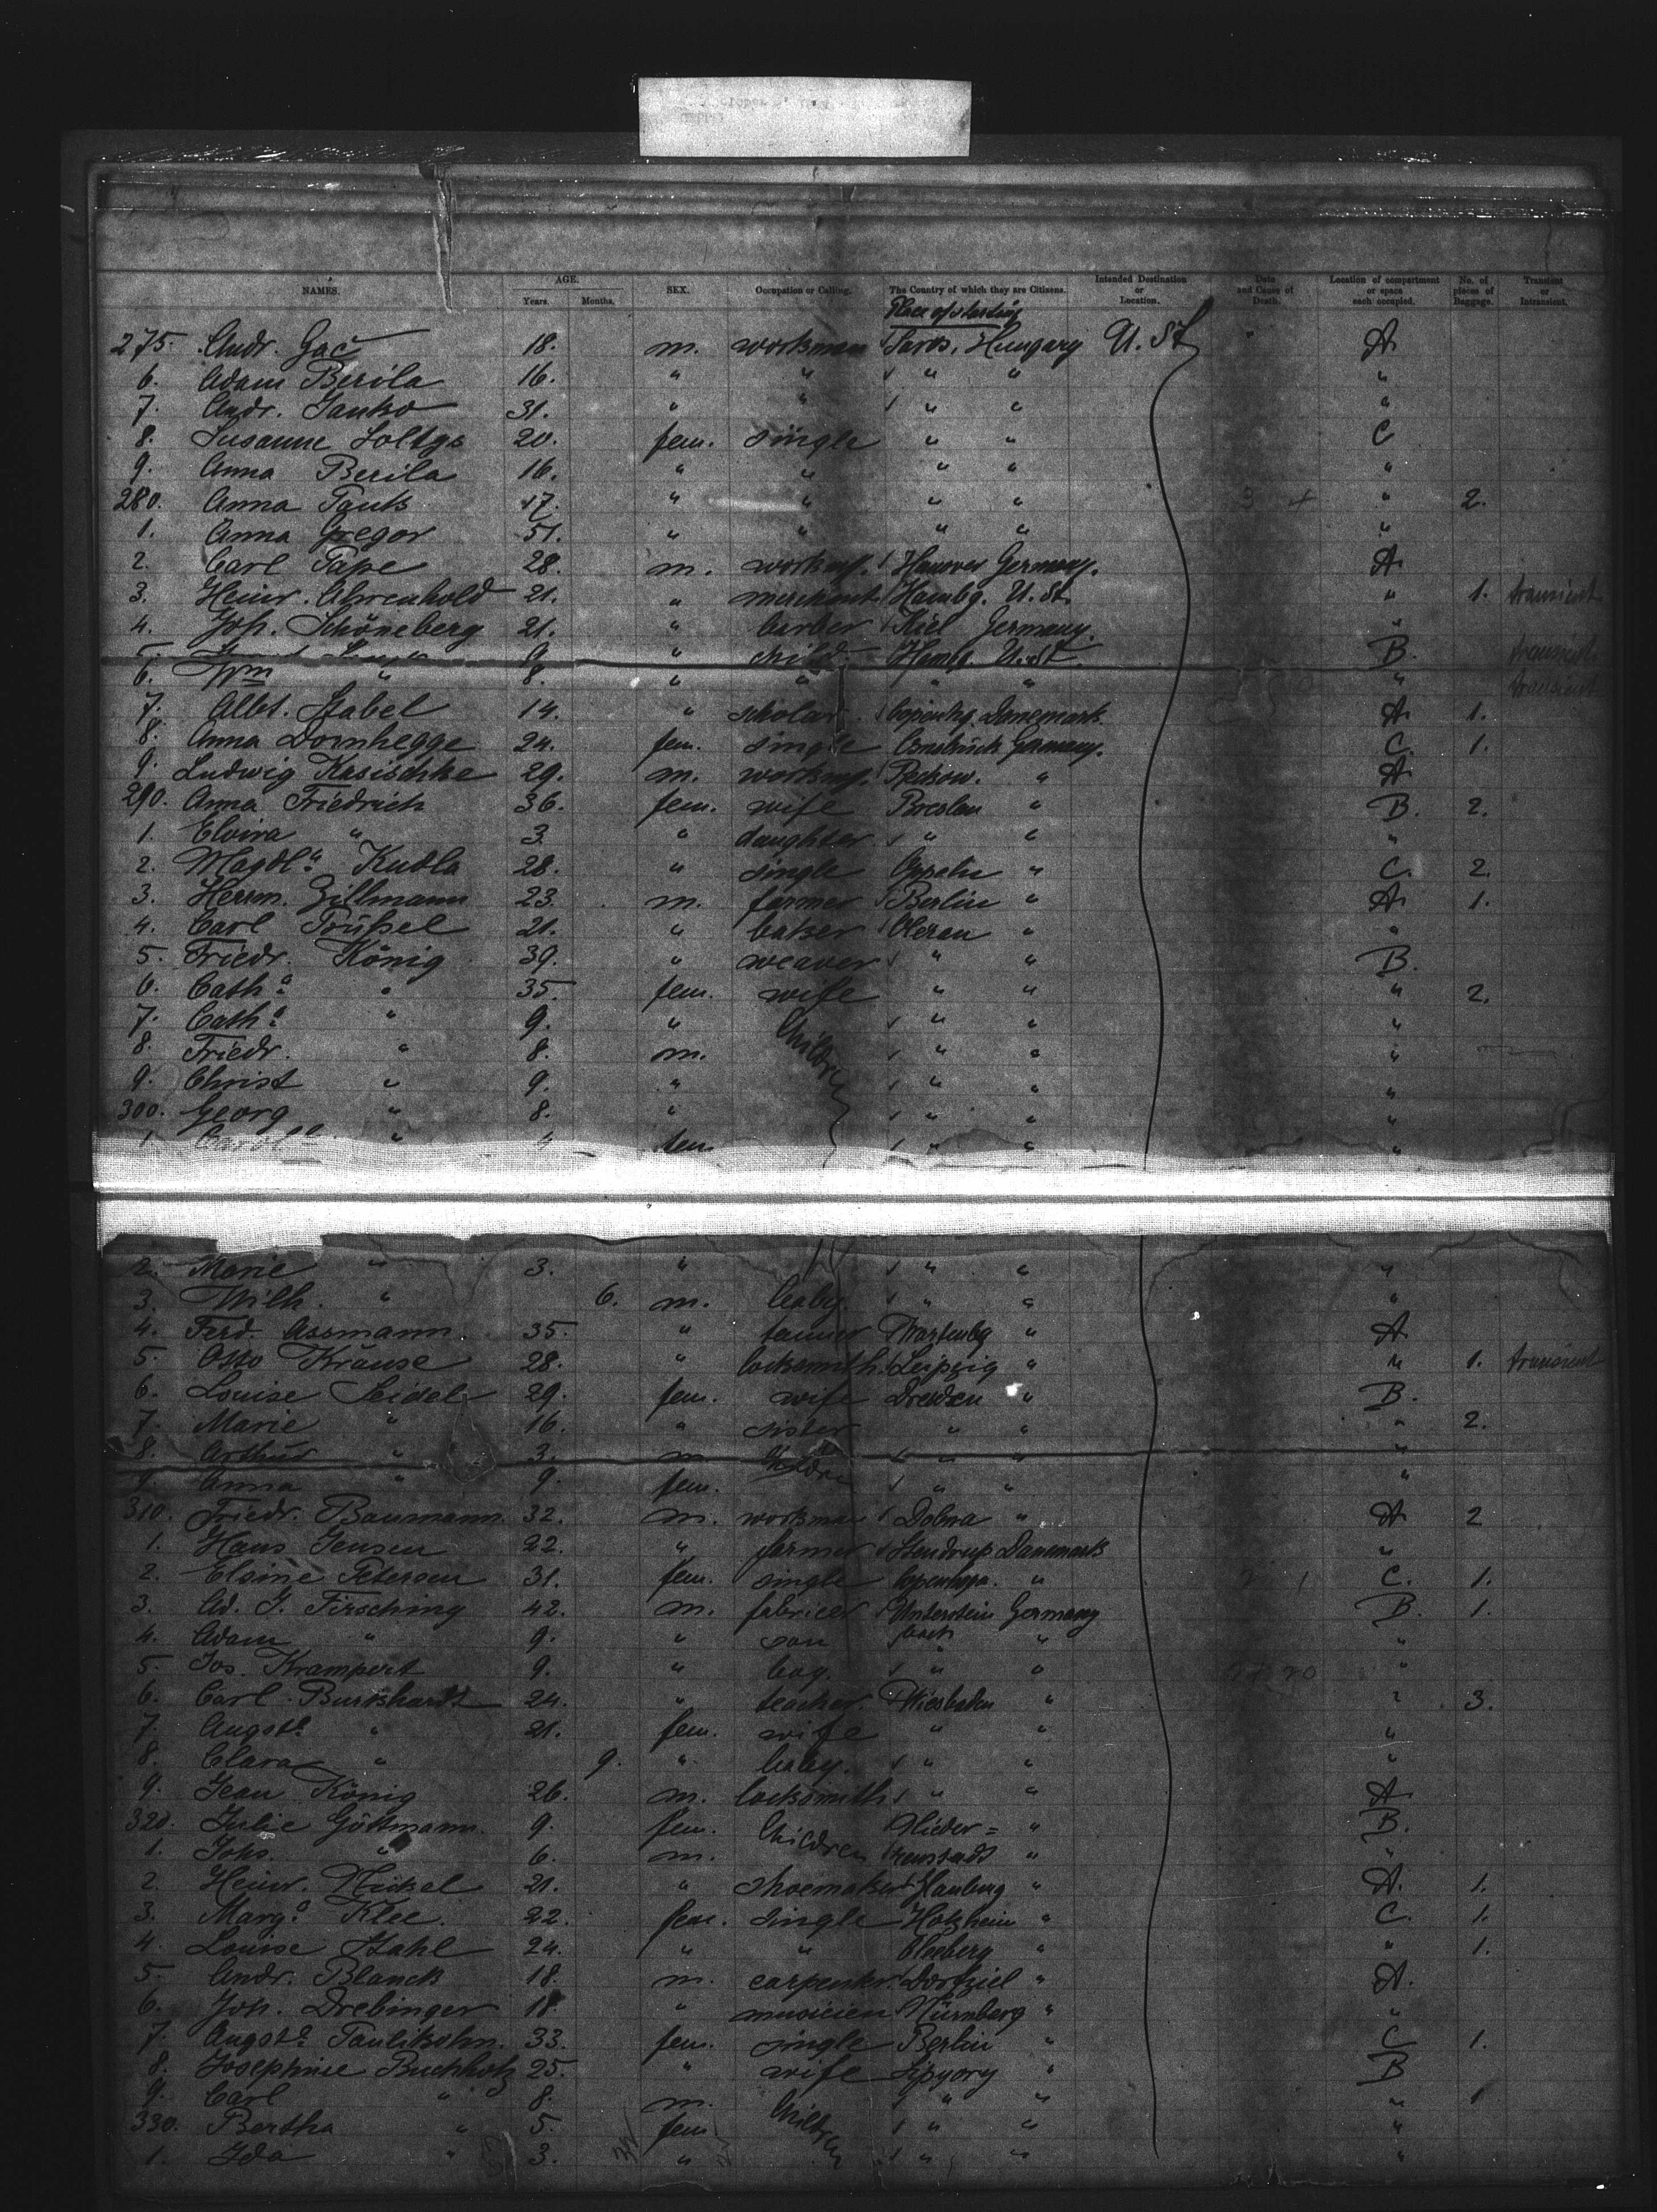 NAMES. AGE. Years. Months. SEX. Occupation or Calling. The Country of which they are Citizens. Intended Destination or Location. Date and Cause of Death. Location of compartment or space each occupied. No. of pieces of Baggage. Transient or Intransient.
Place of starting
275. Andr. Gač 18. m. workman Saros, Hungary U. St. " A
6. Adam Berila 16. " " " " "
7. Andr. Janko 31. " " " " "
8. Susanne Soltys 20. fem. single " " C
9. Anna Berila 16. " " " " "
280. Anna 17. " " " " " 2.
1. Anna Gregor 51. " " " " "
2. Carl Pape 28. m. workm. Hanover Germany. A
3. Heinr. Ahrenhold 21. " merchant Hambg. U. St. " 1. transient
4. Joh. Schöneberg 21. " barber Kiel Germany. "
5. 9. " child Hambg. U. St. B. transient
6. Wm " 8. " " " " " transient
7. Albt. Stabel 14. " scholar. Copenhg. Danemark. A 1.
8. Anna Dornhegge 24. fem. single Osnabrück Germany. C. 1.
9. Ludwig Kasischke 29. m. workm. " A
290. Anna Friedrich 36. fem. wife Breslau " B. 2.
1. Elvira " 3. " daughter " " "
2. Magdl.a Kudla 28. " single Oppeln " C. 2.
3. Herrm. Zillmann 23. m. farmer Berlin " A 1.
4. Carl 21. " baker " "
5. Friedr. König 39. " weaver " " B.
6. Cath.a " 35. fem. wife " " " 2.
7. Cath.a " 9. " Children " " "
8. Friedr. " 8. m. " " "
9. Christ " 9. " " " "
300. Georg " 8. " " " "
1. " 4 fem " " "
2. Marie " 3. " " " "
3. Wilh. " 6. m. baby. " " "
4. Ferd. Assmann 35. " Wartenbg " A
5. Otto Krause 28. " locksmith. Leipzig " " 1. transient
6. Louise Seidel 29. fem. wife Dresden " B.
7. Marie " 16. " sister " " " 2.
8. Arthur " 3. m Children " " "
9. Anna " 9. fem. " " "
310. Friedr. Baumann. 32. m. workman Dobra " A 2
1. Hans Jensen 22. " farmer Stendrup Danemark "
2. Elsine Petersen 31. fem. single Copenhgn. " C. 1.
3. Ad. J. Firsching 42. m. Unterstein Germany B. 1.
4. Adam " 9. " son bach " "
5. Jos. Krampert 9. " boy. " " "
6. Carl Burkhardt 24. " teacher. Wiesbaden " " 3.
7. Augste. " 21. fem. wife " " "
8. Clara " 9. " baby. " " "
9. Jean König 26. m. locksmith " " A
320. Julie Göttmann. 9. fem. Children Nieder= " B.
1. Johs. " 6. m. " "
2. Heinr. Nickel 21. " shoemaker " A. 1.
3. Marg.a Klee. 22. fem. single Holzheim " C. 1.
4. Louise Stahl 24. " " Cleeberg " " 1.
5. Andr. Blanck 18. m. carpenter. " A.
6. Joh. Drebinger 18. " musicien Nürnberg " "
7. Augste. 33. fem. single Berlin " C 1.
8. Josephine Buchholz 25. " wife " B
9. Carl " 8. m. Children " " " 1
330. Bertha " 5. fem. " " "
1. Ida " 3. " " " "